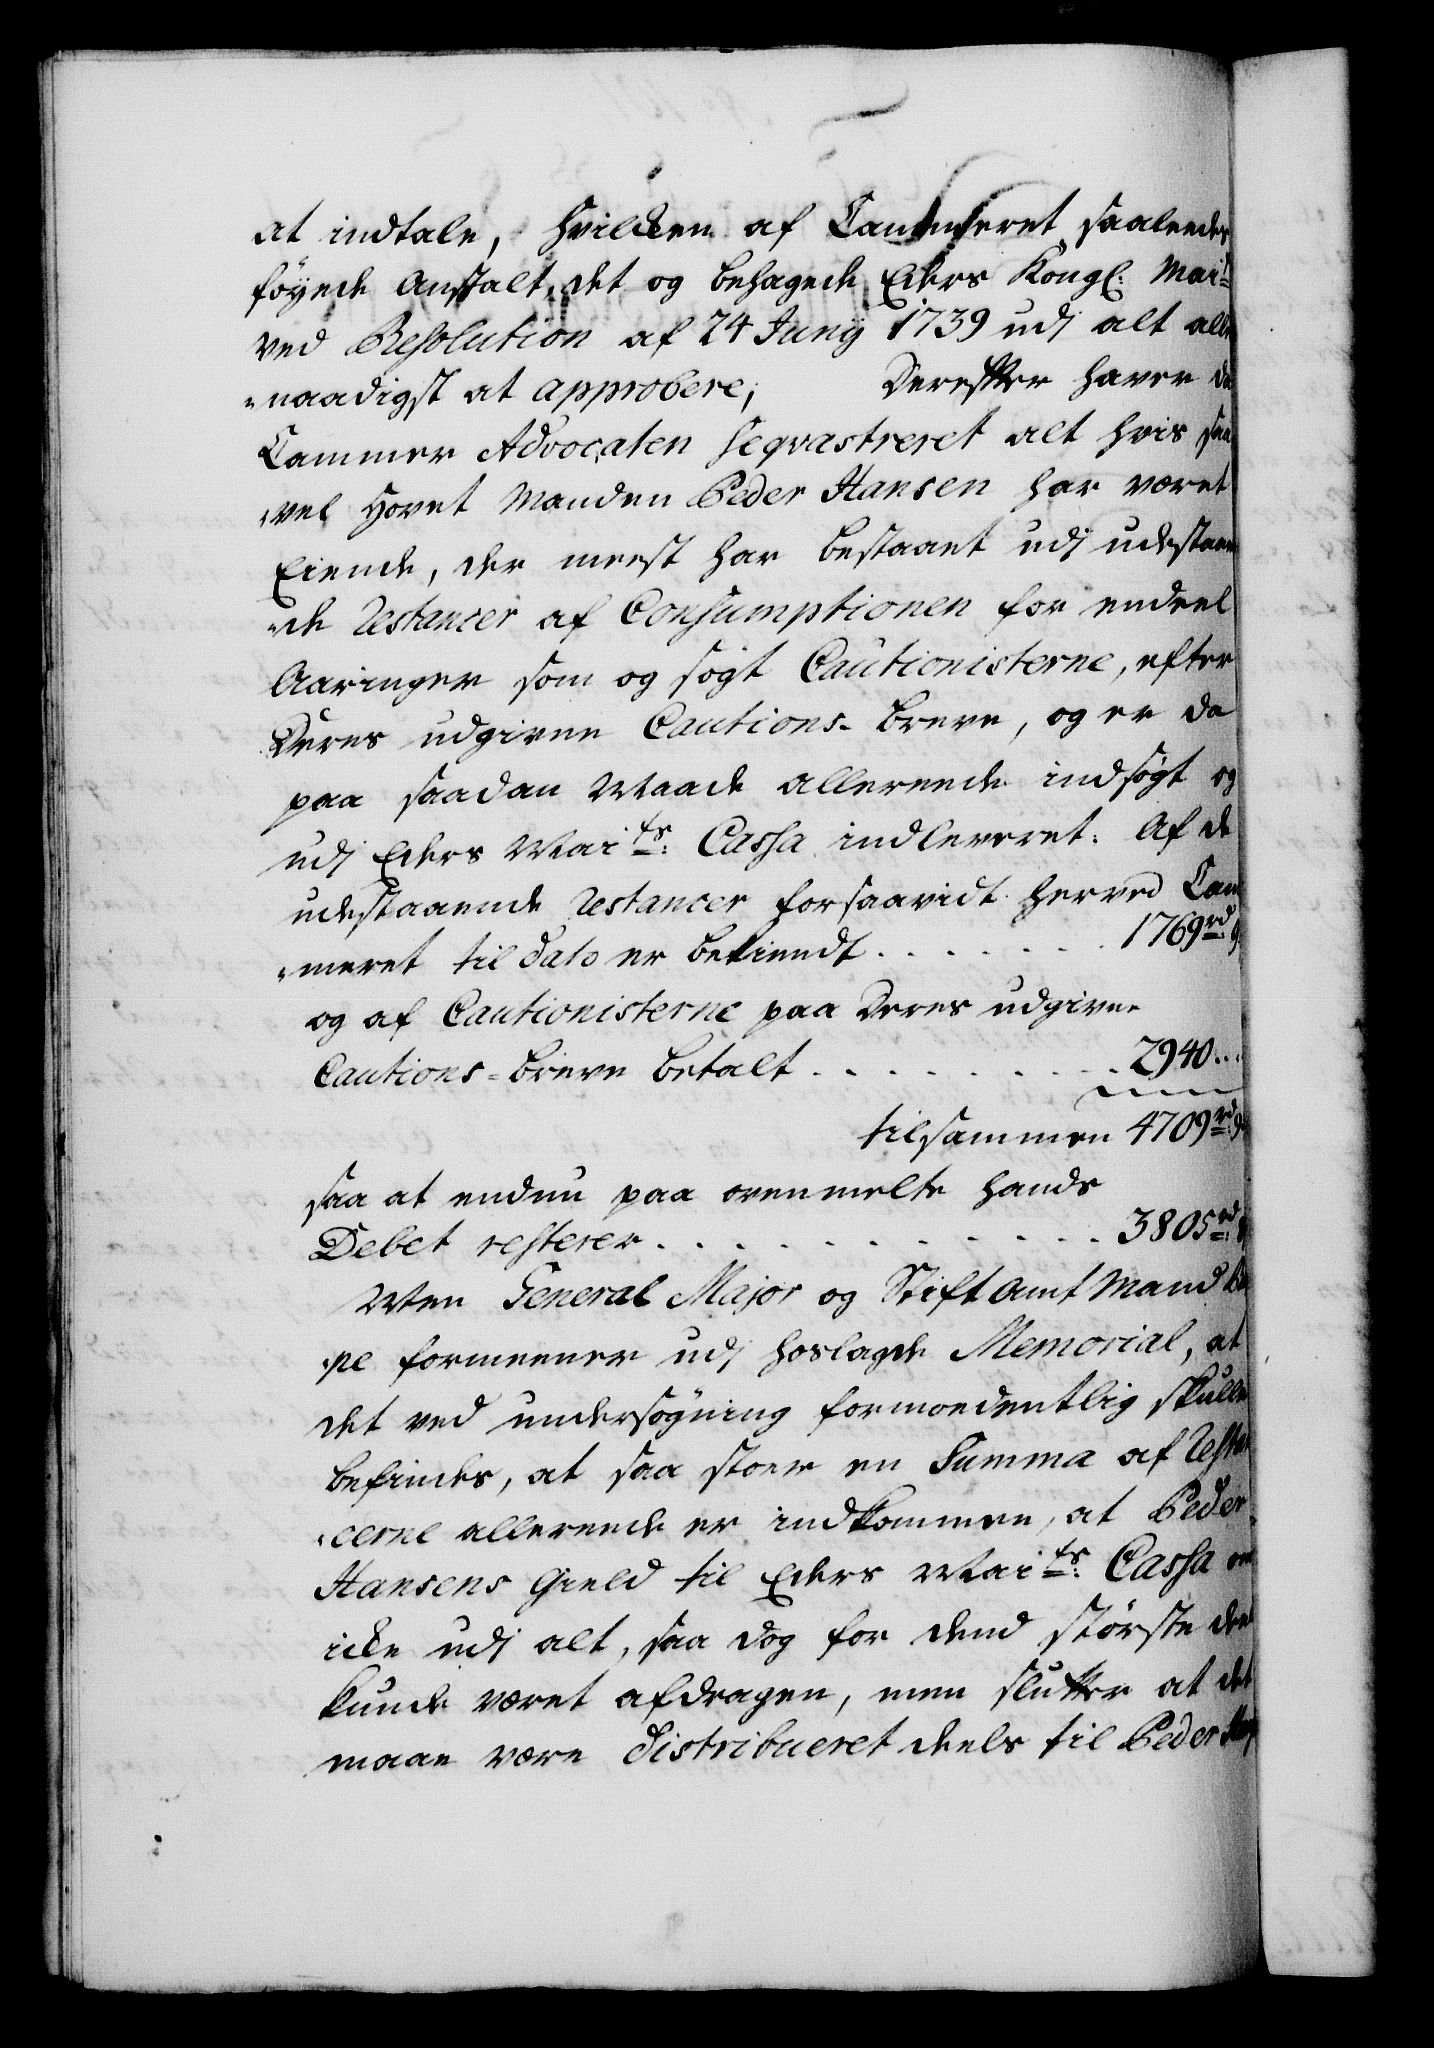 at indtale, hvilcken af Cammeret saaleedes
føyede Anstalt, det og behagede Eders Kongl: Mai
ved Resolution af 24 Junÿ 1739 udj alt aller
naadigst at approbere, Derefter haver
Cammer Advocaten seqvastreret alt hvis saa
vel Hovet Manden Peder Hansen har været
Eiende, der meest har bestaaet udj udestaaen
de Restancer af Consumptionen for endeel
Aaringer som og søgt Cautionisterne, efter
Deres udgivne Cautions-breve, og er da
paa saadan Maade allereede indsøgt og
udj Eders Mai.ts: Cassa indleveret: Af de
udestaaende Restancer forsaavidt herved Cam
meret til dato er bekiendt . . . . . . 1769 rd:
og af Cautionisterne paa Deres udgivne
Cautions-breve betalt . . . . . . . . 2940 . .
tilsammen 4709 rd:
saa at endnu paa ovenmelte hands
Debet resterer . . . . . . . . . . . . 3805 rd:
Men General Major og Stift Amt Mand
pe formeener udj hoslagde Memorial, at
det ved undersøgning formoedentlig skulle
befindes, at saa stoer en Summa af Restan
cerne allereede er indkommen, at Peder
Hansens Gield til Eders Mai.ts: Cassa om
icke udj alt, saa dog for dend største deel
kunde været afdragen, men slutter at det
maae være distribueret deels til Peder